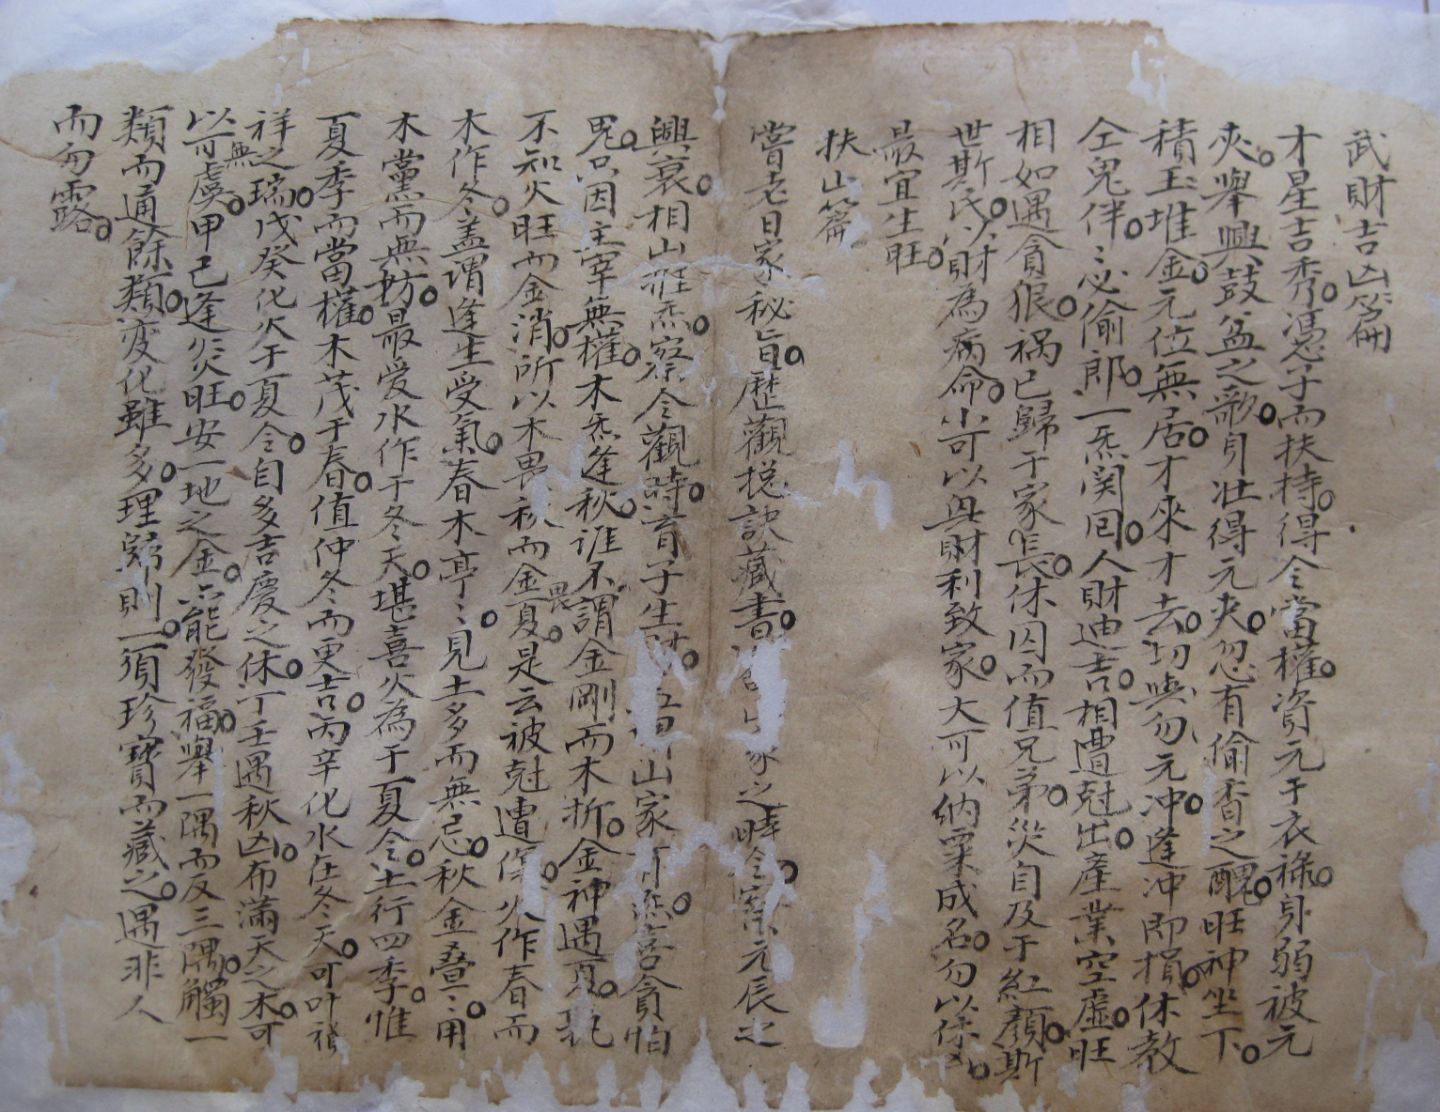 武財吉凶篇
才星吉秀。憑子而扶持。得令當權。資元于衣祿。身弱被元
夾。舉興鼓盆之歌。身壯得元夾。忽有偷香之醜。旺神坐下。
積玉堆金。元位無居。才來才去。切與勿元冲。逢冲即損。休教
仝鬼伴。〻必偷郎。一炁関囘。人財迪吉。相遭尅出。產業空虛。旺
相如遇貪狠。祸已歸于家長。休囚而值兄弟。災自及于紅顏。斯
世斯民。以財為病命。小可以與財利致家。大可以納粟成名。勿以保
最宜生旺。
扶山篇
嘗考日家秘旨。歷觀捴訣藏書。家之時。令察元辰之
興衰。相山旺炁。察令觀時。有子生財。山家可恶。喜貪怕
鬼。只因主宰無權。木炁逢秋。誰不謂金剛而木折。金神遇夏。孰
不知火旺而金消。所以木畏秋而金畏夏。是云被尅遭傷。火作春而
木作冬。盖謂逢生受氣。春木亭〻。見土多而無忌。秋金叠〻。用
木黨而無妨。最受水作于冬天。堪喜火為于夏令。土行四季。惟
夏季而當權。木茂于春。值仲冬而更吉。丙辛化水在冬天。可叶禎
祥之瑞。戊癸化火于夏令。自多吉慶之休。丁壬遇秋凶。布滿天之木。可
以無可虞。甲己逢炎旺。安一地之金。亡能發福。舉一隅而反三隅。觸一
類而通餘類。变化雖多。理歸則一。須珍寶而藏之。遇非人
而勿露。